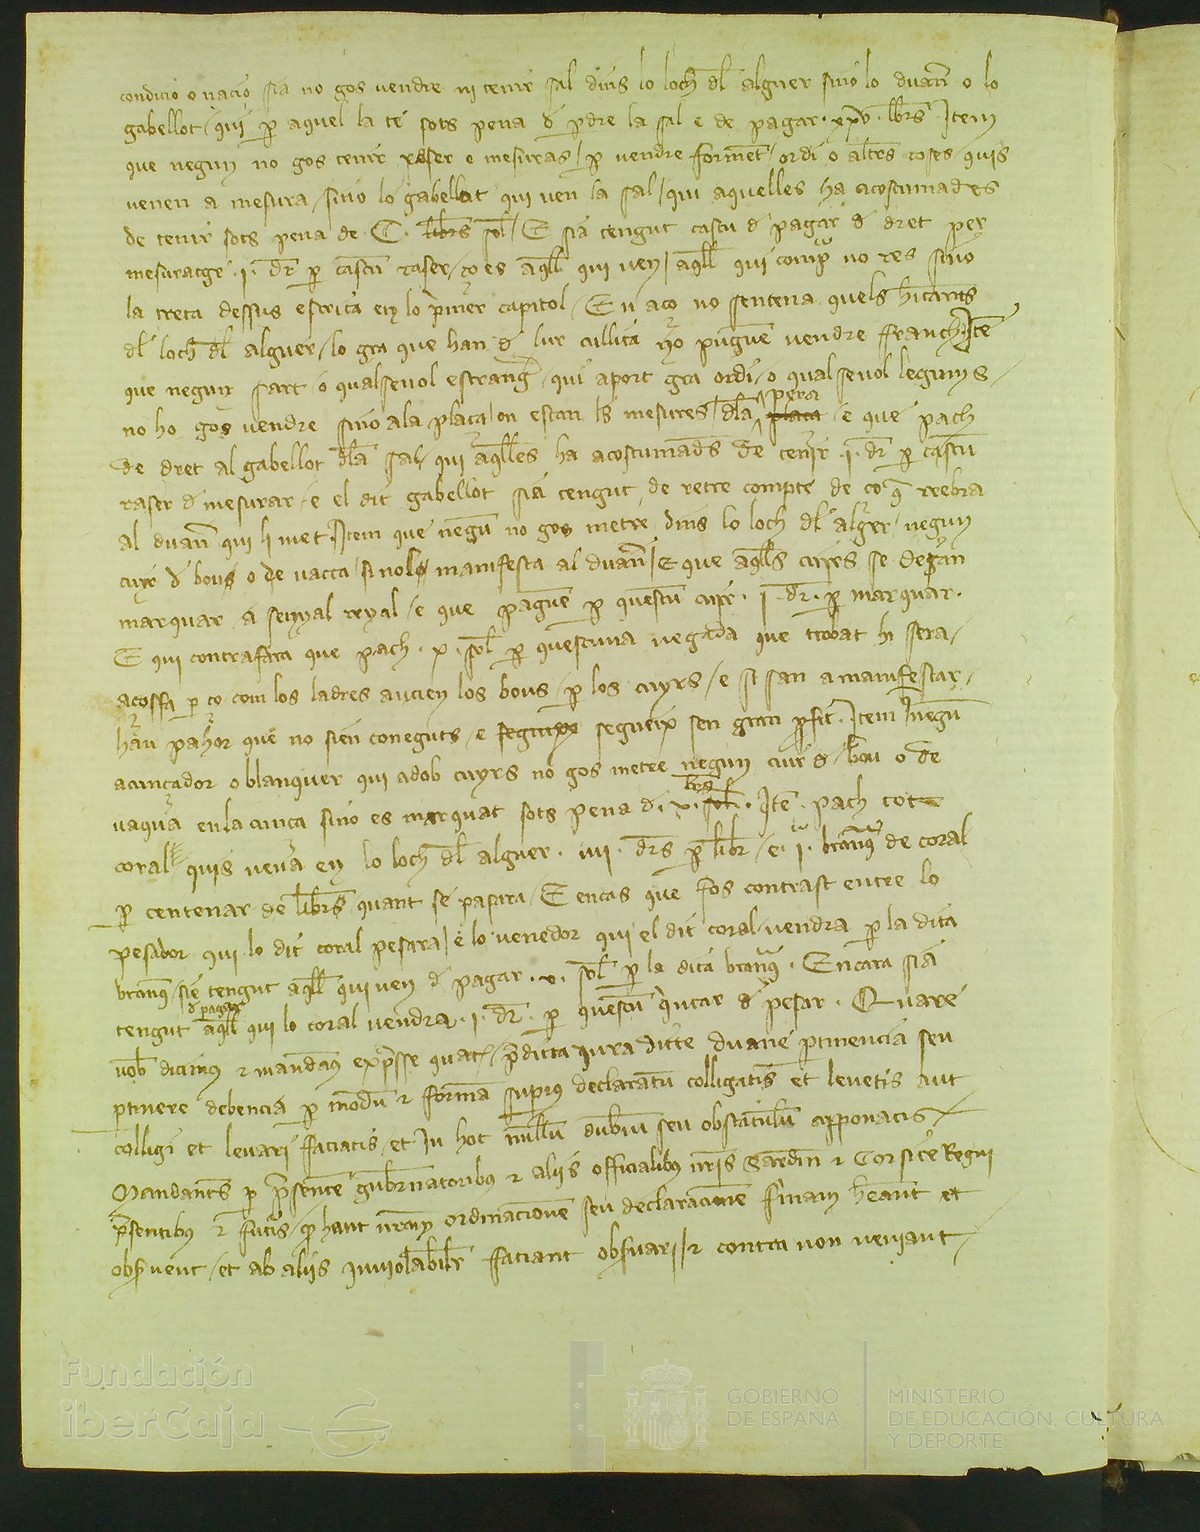 condicio o nacio sia no gos vendre ni tenir sal dins lo loch dl alguer sino lo duan o lo
gabellot / qui p aquel la te sots pena d pdre la sal e de pagar . xxv . lbrs Item
que negun no gos tenir raser o mesuras / p vendre forment / ordi o altres coses quis
venen a mesura / sino lo gabellot qui ven la sal / qui aquelles ha acostumades
de tenir sots pena de . C . lbrs sol / E sia tengut cascu d pagar d dret per
mesuratge . i . dr p cascu raser / ço es aqll qui ven / aqll qui comp no res sino
la treta dessus escrita en lo primer capitol / En aço no sentena quels hitants
dl loch dl alguer / lo gra que han d lur cullita no puguen vendre franch Ite
que negun sart o qualsevol estrang / qui aport gra ordi / o qualsevol legums /
no ho gos vendre sino ala plaça / on estan ls mesures / dla plaça pera / e que pach
de dret al gabellot dla sal / qui aqlles ha acostumads de tenir . i . dr p cascu
raser d mesurar / e el dit gabellot sia tengut de retre compte de ço q rrebra
al duan qui li met Item que negu no gos metre dins lo loch dl alguer / negun
cuyr d bous o de vacca / sinolo manifesta al duan / E que aqlls cuyrs se degan
marquar a senyal reyal / e que paguen p quescu cuyr . i . dr . p marquar .
E qui contrafara que pach . x . sol p quescuna vegada que trobat hi sera /
açosfa p ço com los ladres aucien los bous / p los cuyrs / e si san a manifestar /
hauran pahor que no sien coneguts / e seguixo segueix sen gran pfit . Item negu
acunçador o blanquer qui adob cuyrs no gos metre negun cuir d bou o de
vaqua en la cunça sino es marquat sots pena d . x . sol . lbrs Ite . pach tot
coral quis vena en lo loch dl alguer . iiii . drs p libr / e . i . branq de coral
p centenar de libres quant se pesara / E encas que fos contrast entre lo
pesador qui lo dit coral pesara / e lo venedor qui el dit coral vendra p la dita
branq / sie tengut aqll qui ven d pagar . v . sol p la dita branq . Encara sia
tengut d pagar aqll qui lo coral vendra . i . dr . p quescu quitar d pesar . Quare
vob dicimus et mandam expsse quat pdicta iura dicte duane ptinencia seu
ptinere debencia p modu et forma supius declaratu colligatis et levetis aut
colligi et levari faciatis / et in hoc nullu dubiu seu obstaculu apponatis /
Mandants p psente gubrnatoribus et aliis officialibus nris Sardin et Corsice Regni
psentibus et futis / q hanc nram ordinacionem seu declaracione firmam heant et
obsvent / et ab aliis inviolabilr faciant obsvari / et contra non veniant /
Fundación
iberCaja
GOBIERNO
DE ESPAÑA
MINISTERIO
DE EDUCACIÓN, CULTURA
Y DEPORTE